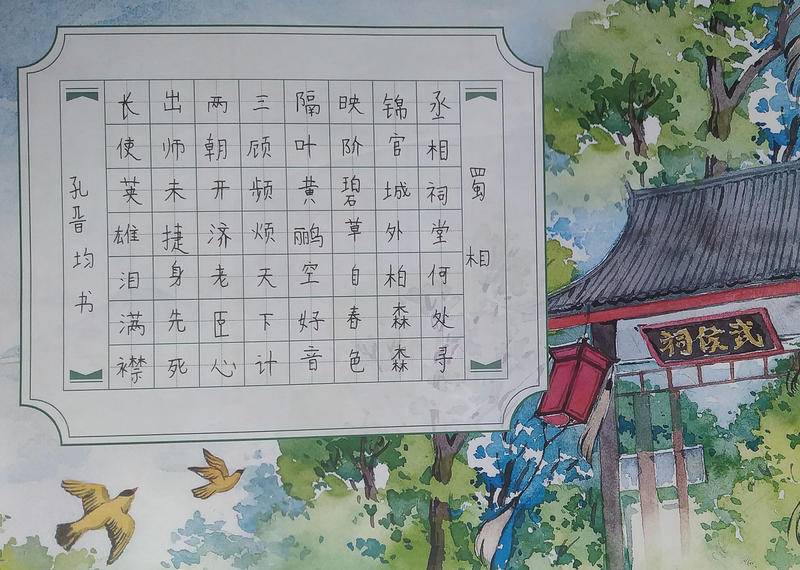 蜀相
丞相祠堂何处寻
锦官城外柏森森
映阶碧草自春色
隔叶黄鹂空好音
三顾频烦天下计
两朝开济老臣心
出师未捷身先死
长使英雄泪满襟
孔晋均书
武侯祠